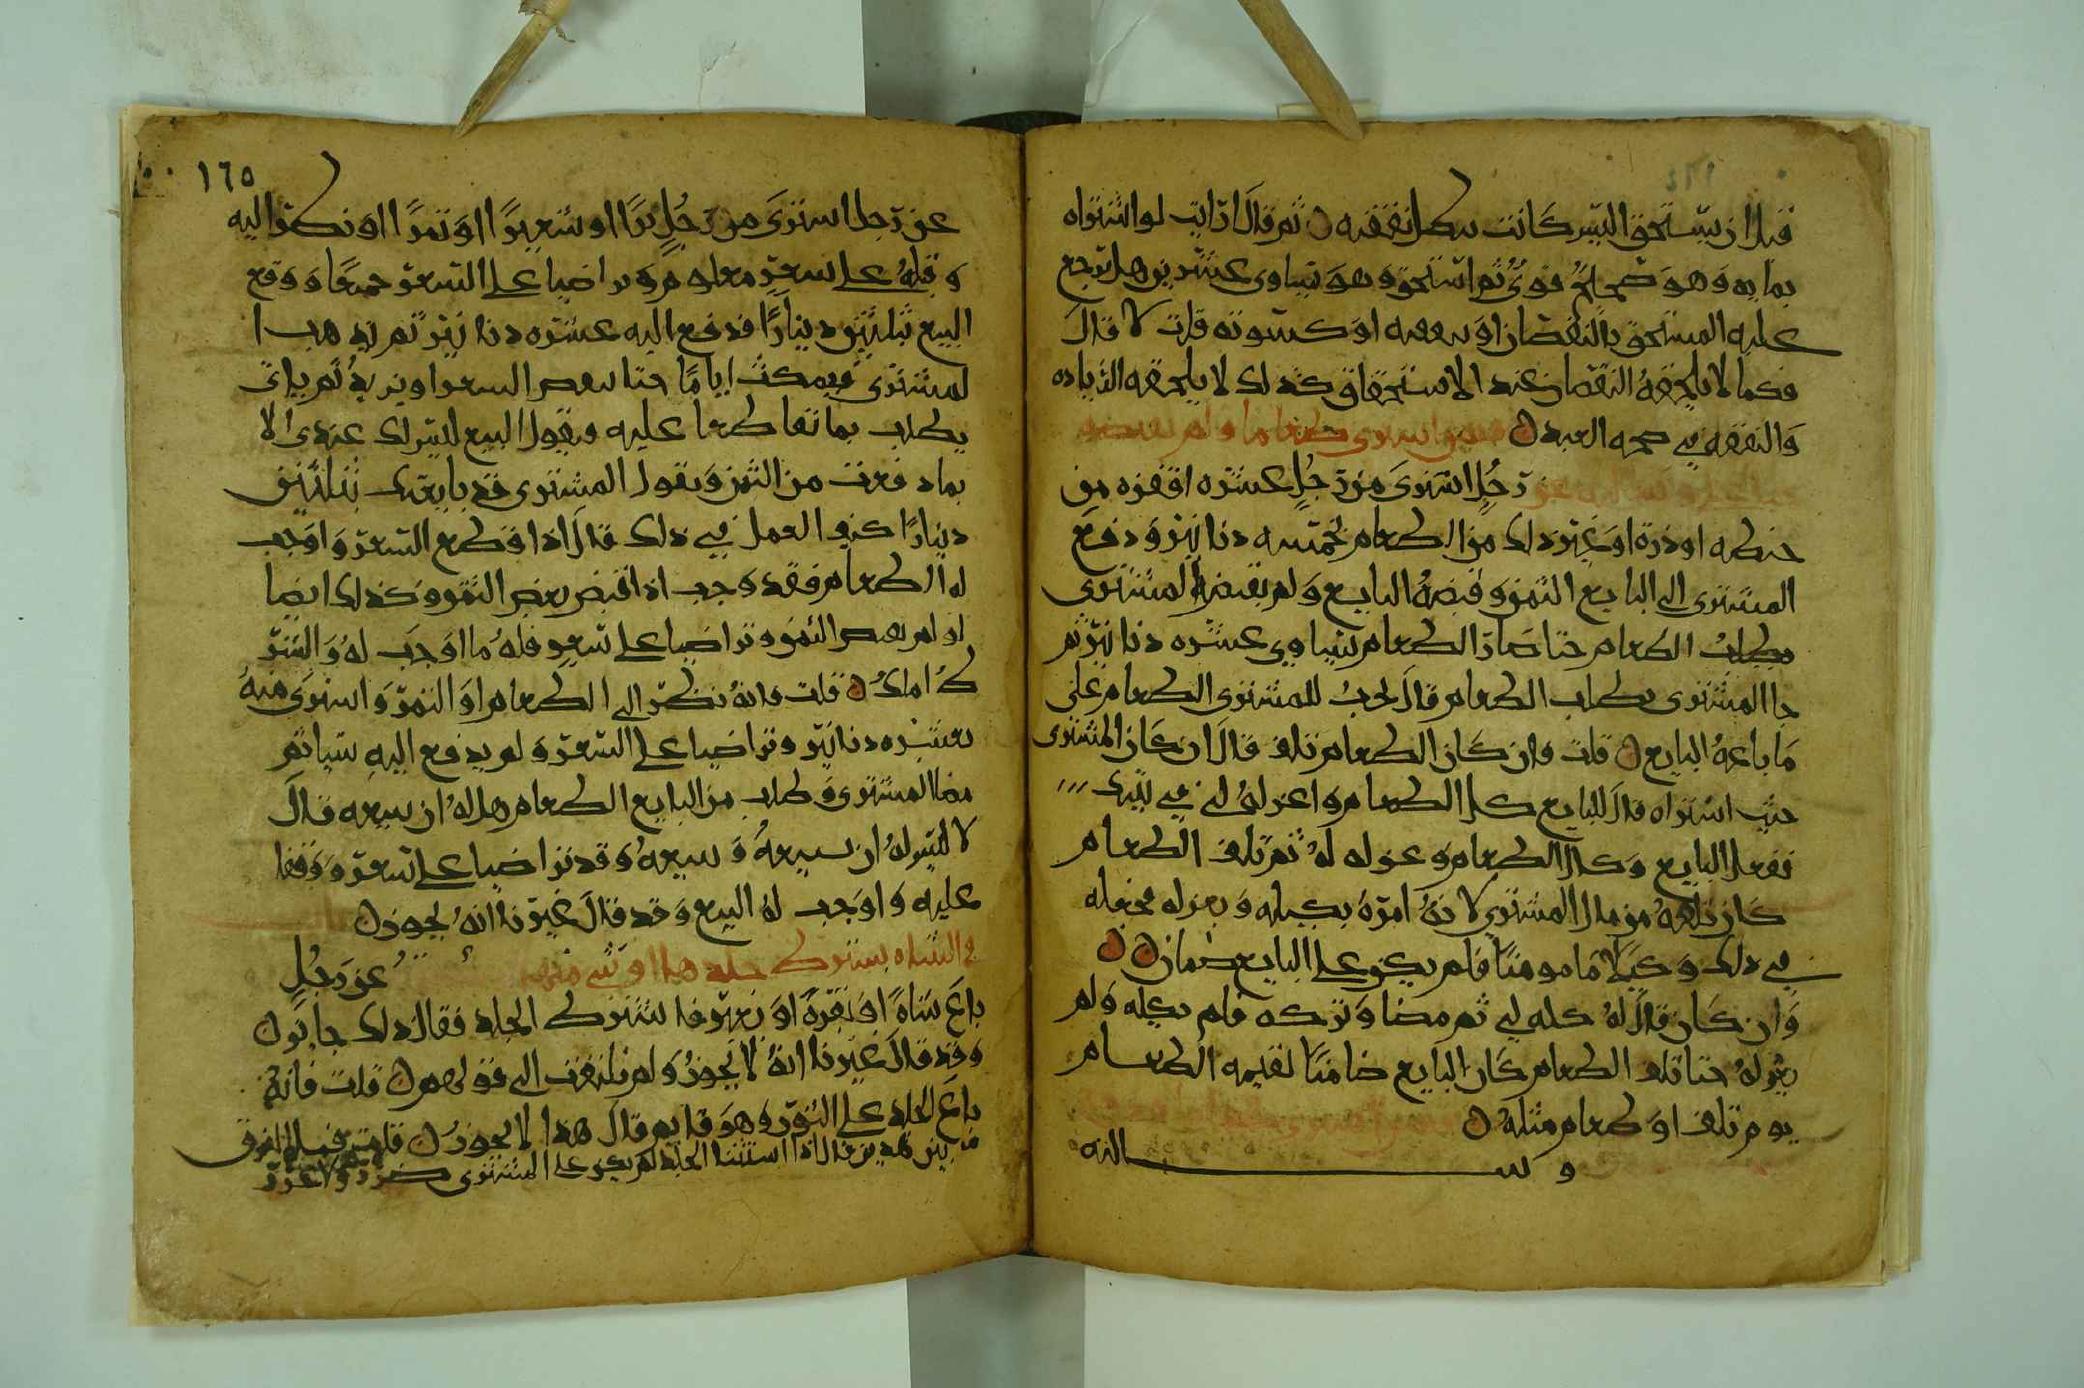 قبل ان يستحق التيس كانت بطل نفقته ثم قال ارايت لو اشتراه
بمايه وهو صحيح فوي ثم استحق وهو يساوي عشرين هل يرجع
عليه المستحق بالنقصان او بنفقته او كسوته قلت لا قال
فكما لا يلحقه النقصان عند الاستحقاق كذلك لا يلحقه الزياده
والنفقه في صحه العبد فيمن اشترى طعاما ولم يقبضه
وسالته عن رجل اشترى من رجل عشره اقفزه من
حنطه او ذرة او غير ذلك من الطعام بخمسه دنانير ودفع
المشتري الى البايع الثمن وقبضه البايع ولم يقبض المشتري
الطعام حتا صار الطعام يساوي عشره دنانير ثم
جا المشتري يطلب الطعام قال يجب للمشتري الطعام على
ما باعه البايع قلت فان كان الطعام تلف قال ان كان المشتري
حيث اشتراه قال للبايع كل الطعام واعزله لي في بيتك
ففعل البايع وكال الطعام وعزله له ثم تلف الطعام
كان تلفه من مال المشتري لانه امره بكيله وبعزله فجعله
في ذلك وكيلا مامومنا فلم يكن على البايع ضمان
وان كان قال له كله لي ثم مضا وتركه فلم يكله ولم
يعزله حتا تلف الطعام كان البايع ضامنا لقيمه الطعام
يوم تلف او طعام مثله
وسالته
١٦٥
عن رجل اشترى من رجل برا او شعيرا او تمرا او نظر اليه
وقلبه على سعر معلوم وتراضيا على السعر جميعا ووقع
البيع بثلثين دينارا فدفع اليه عشره دنانير ثم يذهب ا
لمشتري فيمكث اياما حتا ينقص السعر او يزيد ثم ياتي
يطلب بما تقاطعا عليه ويقول البيع ليس لك عندي الا
بما دفعت من الثمن ويقول المشتري قد بايعتك بثلثين
دينارا كيف العمل في ذلك قال اذا قطع السعر واوجب
له الطعام فقد وجب اذا قبض بعض الثمن وكذلك ايضا
لو لم يقبض الثمن وتراضيا على سعر فله ما اوجب له والشر
ط املك قلت فانه نظر الى الطعام او التمر واشترى منه
بعشره دنانير وتراضيا على السعر ولم يدفع اليه شيا ثم
مضا المشتري وطلب من البايع الطعام هل له ان يبيعه قال
لا ليس له ان يبيعه وقد تراضيا على سعر ووقفا
عليه واوجب له البيع وقد قال غيرنا انه يجوز
في الشاه يشترط جلدها او شي منها عن رجل
باع شاة او بقرة او بعيرا فاشترط الجلد فقال ذلك جايز
وقد قال غيرنا انه لا يجوز ولم نلتفت الى قولهم قلت فانه
باع الجلد على الثور وهو قايم قال هذا لا يجوز قلت فما الفرق
بين هذين قال اذا استثنا الجلد لم يكن على المشتري ضرر ولا غرر